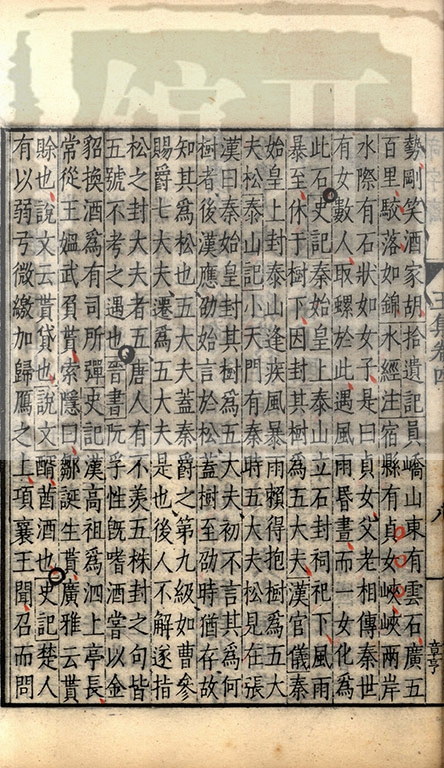 勢剛笑酒家胡拾遺記員嶠山東有雲石廣五
百里駁落如錦水經注宿縣有貞女峽峽兩岸
水際有石狀如女子是曰貞女父老相傳秦世
有女數人取螺於此遇風雨昬晝而一女化爲
此石史記秦始皇上泰山立石封祠祀下風雨
暴至休于樹下因封其樹爲五大夫漢官儀秦
始皇上封泰山逢疾風暴雨賴得抱樹爲五大
夫松泰山記小天門有秦時五大夫松見在張
漢曰秦始皇封其樹爲五大夫初不言其爲何
樹者後漢應劭始言於松蓋樹至劭時猶存故
知其爲松也五大夫蓋秦爵之第九級如曹參
賜爵七大夫遷爲五大夫是也後人不解遂指
松之封大夫者五唐人有不羨五株封之句皆
五號不考之過也晉書阮孚性旣嗜酒嘗以金
貂換酒爲有司所彈史記漢高祖爲泗上亭長
常從王媼武負貰索隱曰鄒誕生貰廣雅云貰
賖也說文云貰貸也說文酋酒也史記楚人
有以弱弓微繳加歸鴈之上項襄王聞召而問
八
章亨